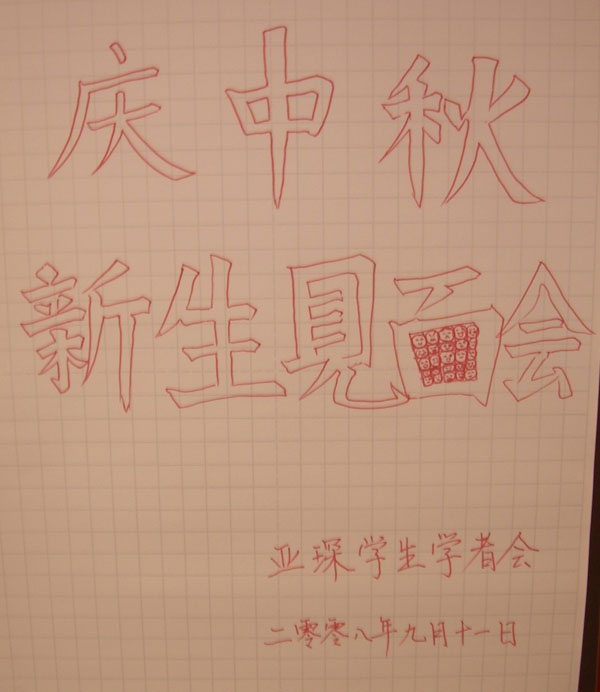 庆中秋
新生見面会
亚琛学生学者会
二零零八年九月十一日